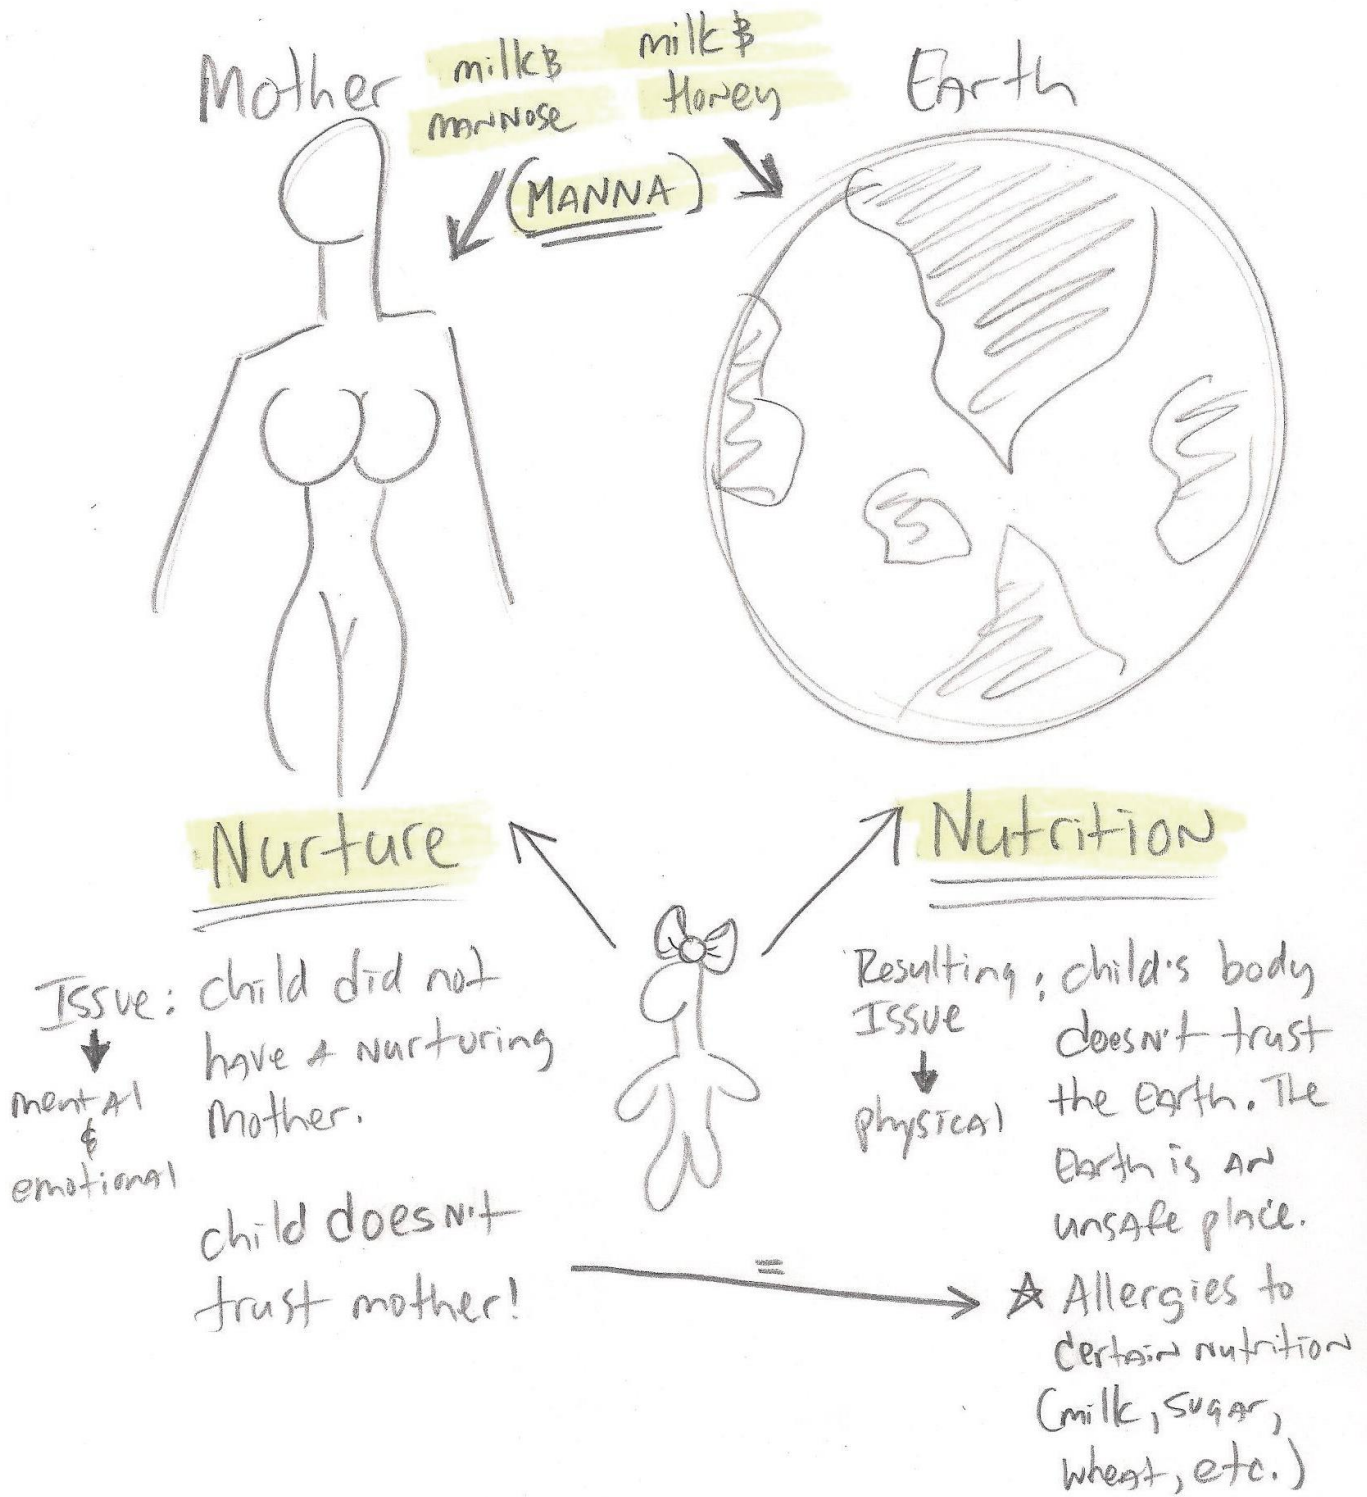 Mother
milk &
mannose
milk &
Honey
Earth
(MANNA)
Nurture
Nutrition
Issue:
mental
&
emotional
child did not
have a nurturing
mother.
child doesn't
trust mother!
=
Resulting:
Issue
physical
child's body
doesn't trust
the Earth. The
Earth is an
unsafe place.
☆ Allergies to
certain nutrition
(milk, sugar,
wheat, etc.)